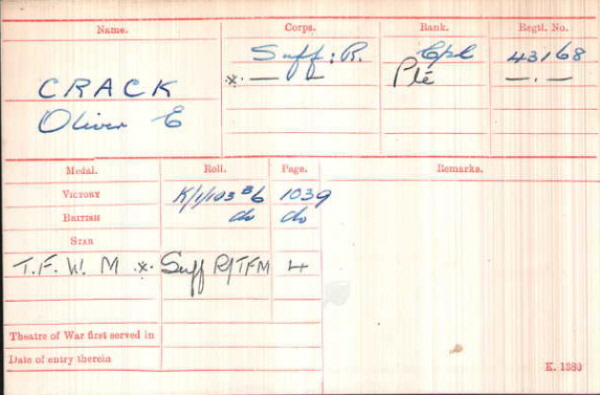 Name. Corps. Rank. Regtl. No.
Suff: R. Cpl 43168
CRACK *. — " — Pte — . —
Oliver E
Medal. Roll. Page. Remarks.
VICTORY K/1/103 B6 1039
BRITISH do do
STAR
T.F.W.M .*. Suff R/TFM 4
Theatre of War first served in
Date of entry therein
K. 1380